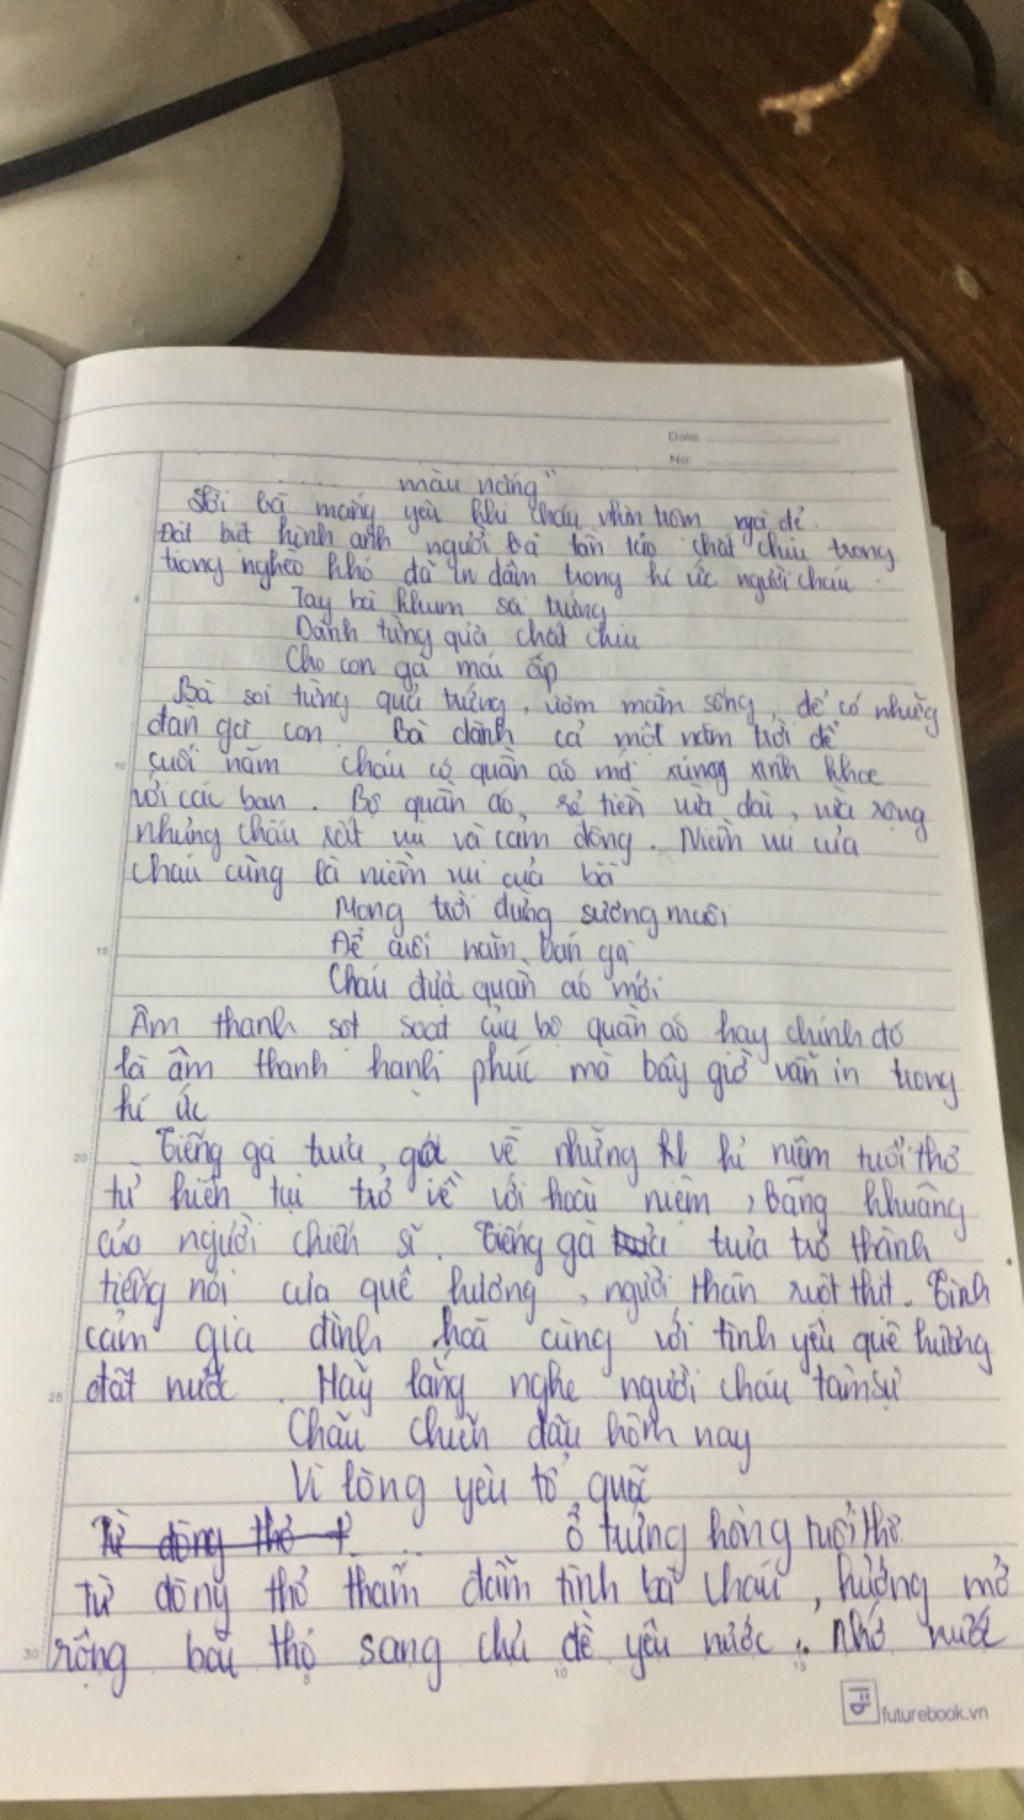 Date:
No:
...... màu nắng"
Lời bà mắng yêu khi cháu nhìn trộm gà đẻ.
Đặt biệt hình ảnh người bà tần tảo chắt chiu trong
trong nghèo khó đã in đậm trong kí ức người cháu.
Tay bà khum soi trứng
Dành từng quả chắt chiu
Cho con gà mái ấp
Bà soi từng quả trứng, ươm mầm sống, để có những
đàn gà con. Bà dành cả một năm trời để
cuối năm cháu có quần áo mới xúng xính khoe
với các bạn. Bộ quần áo, rẻ tiền vừa dài, vừa rộng
nhưng cháu rất vui và cảm động. Niềm vui của
cháu cũng là niềm vui của bà
Mong trời đừng sương muối
Để cuối năm bán gà
Cháu được quần áo mới
Âm thanh sột soạt của bộ quần áo hay chính đó
là âm thanh hạnh phúc mà bây giờ vẫn in trong
kí ức
Tiếng gà trưa, gọi về những kỉ niệm tuổi thơ
từ hiện tại trở về với hoài niệm, bâng khuâng
của người chiến sĩ. Tiếng gà trưa trở thành
tiếng nói của quê hương, người thân ruột thịt. Tình
cảm gia đình hoà cùng với tình yêu quê hương
đất nước. Hãy lắng nghe người cháu tâm sự
Cháu chiến đấu hôm nay
Vì lòng yêu tổ quốc
Từ dòng thơ t ... ổ trứng hồng tuổi thơ.
Từ dòng thơ thắm đẫm tình bà cháu, hướng mở
rộng bài thơ sang chủ đề yêu nước. nhớ nước
5 10 15
futurebook.vn